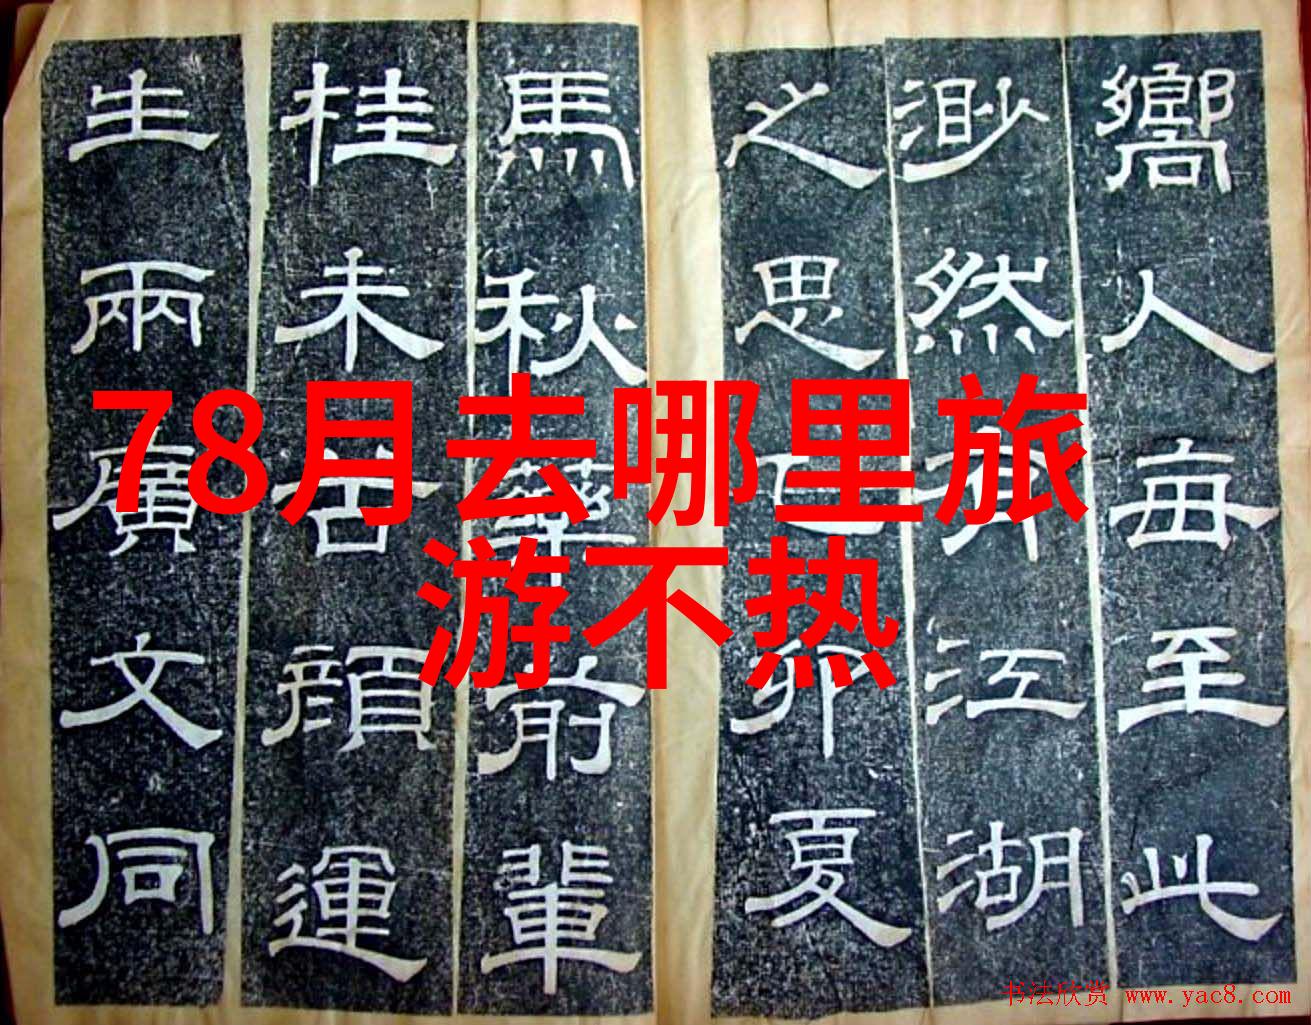 嚮人每至此
渺然有江湖
之思己卯夏
馬秋藥前輩
桂未谷顏運
生兩廣文同
78月去哪里旅
游不热
书法欣赏 www.yac8.com